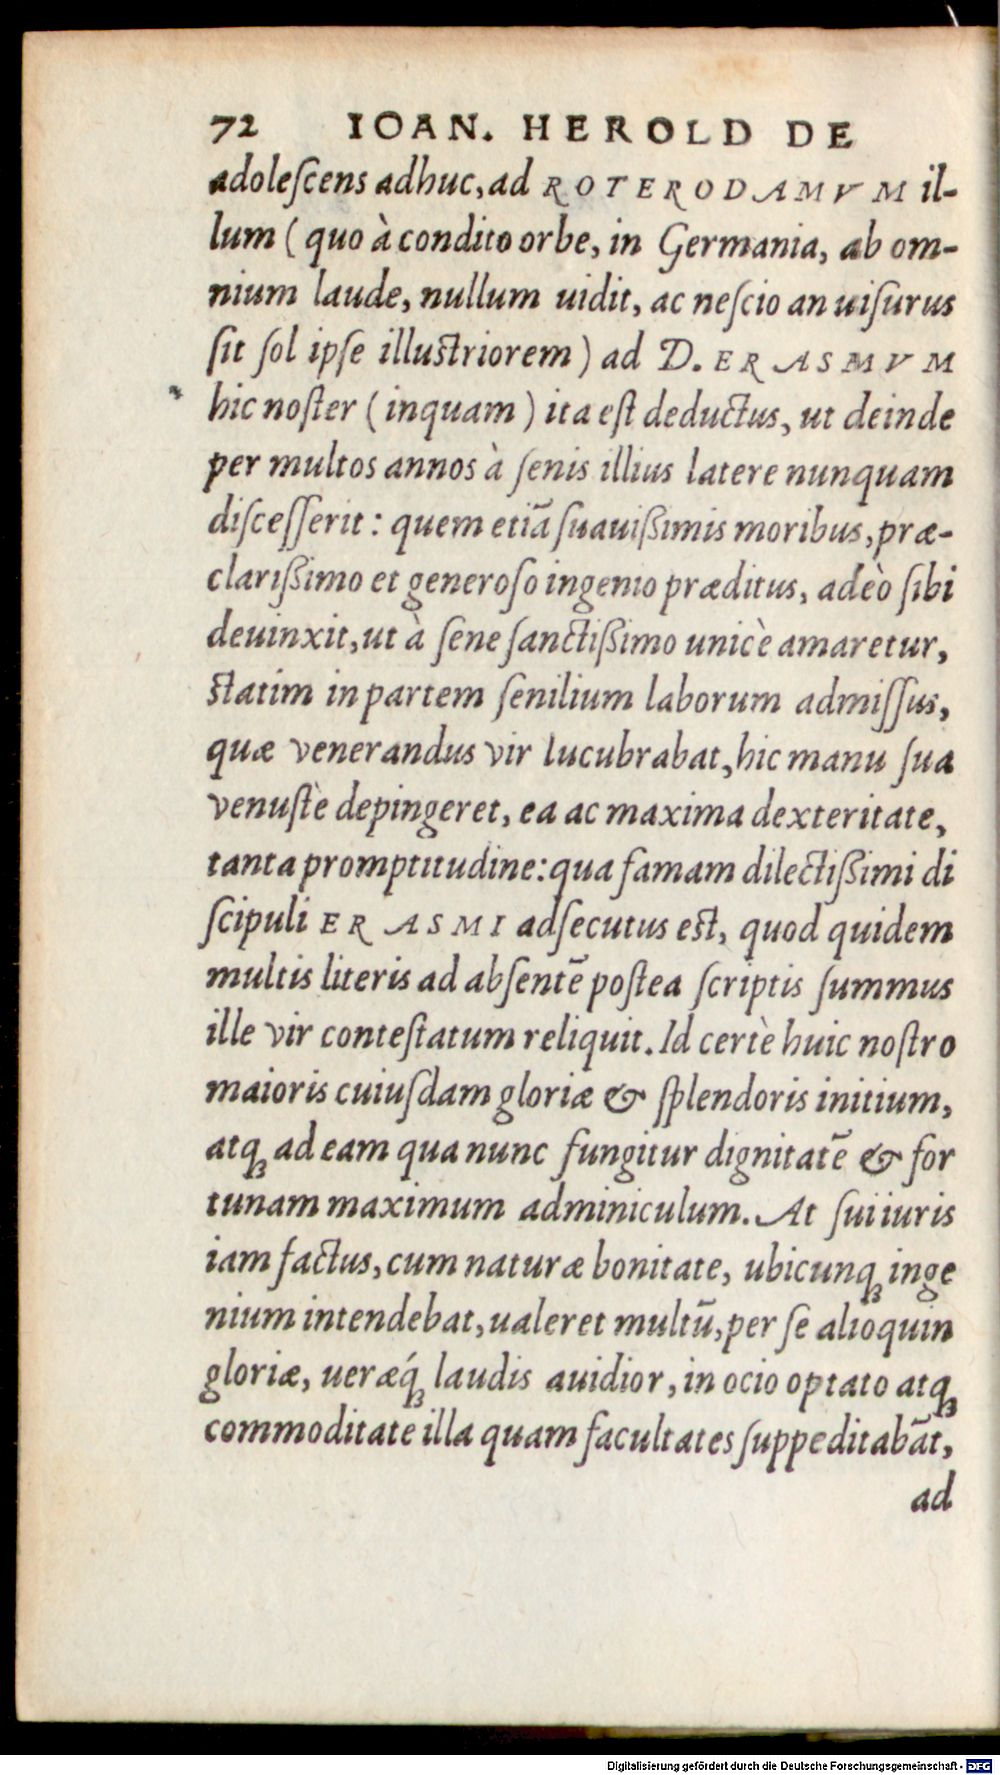 72 IOAN. HEROLD DE
adoleſcens adhuc, ad ROTERODAMVM il-
lum ( quo à condito orbe, in Germania, ab om-
nium laude, nullum uidit, ac neſcio an uiſurus
ſit ſol ipſe illuſtriorem ) ad D. ERASMVM
hic noſter ( inquam ) ita eſt deductus, ut deinde
per multos annos à ſenis illius latere nunquam
diſceſſerit : quem etiã ſuauißimis moribus, præ-
clarißimo et generoſo ingenio præditus, adeò ſibi
deuinxit, ut à ſene ſanctißimo unicè amaretur,
ſtatim in partem ſenilium laborum admiſſus,
quæ venerandus vir lucubrabat, hic manu ſua
venuſtè depingeret, ea ac maxima dexteritate,
tanta promptitudine: qua famam dilectißimi di
ſcipuli ERASMI adſecutus eſt, quod quidem
multis literis ad abſentẽ poſtea ſcriptis ſummus
ille vir conteſtatum reliquit. Id certè huic noſtro
maioris cuiuſdam gloriæ & ſplendoris initium,
atqꝫ ad eam qua nunc fungitur dignitatẽ & for
tunam maximum adminiculum. At ſui iuris
iam factus, cum naturæ bonitate, ubicunqꝫ inge
nium intendebat, ualeret multũ, per ſe alioquin
gloriæ, ueræq́ꝫ laudis auidior, in ocio optato atqꝫ
commoditate illa quam facultates ſuppeditabãt,
ad
Digitalisierung gefördert durch die Deutsche Forschungsgemeinschaft - DFG